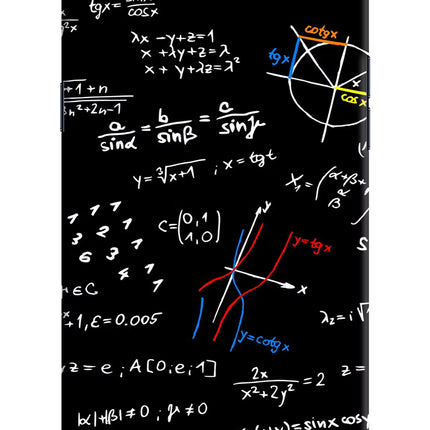 tgx = sinx/cosx
λx - y + z = 1
x + λy + z = λ
x + y + λz = λ²
cotgx
tgx
x
cosx
+1 + n
n² + 2n - 1
a/sinα = b/sinβ = c/sinγ
y = ∛(x+1) ; x = tgt
1 1 1
3 2 1
6 3 1
4 1
1
C = (0,1
1,0)
y
y = tgx
x
y = cotgx
+1, ε = 0.005
z = e ; A[0; e; 1]
2x/(x² + 2y²) = 2
z =
|α| + |β| ≠ 0 ; γ ≠ 0
= sinx cosy